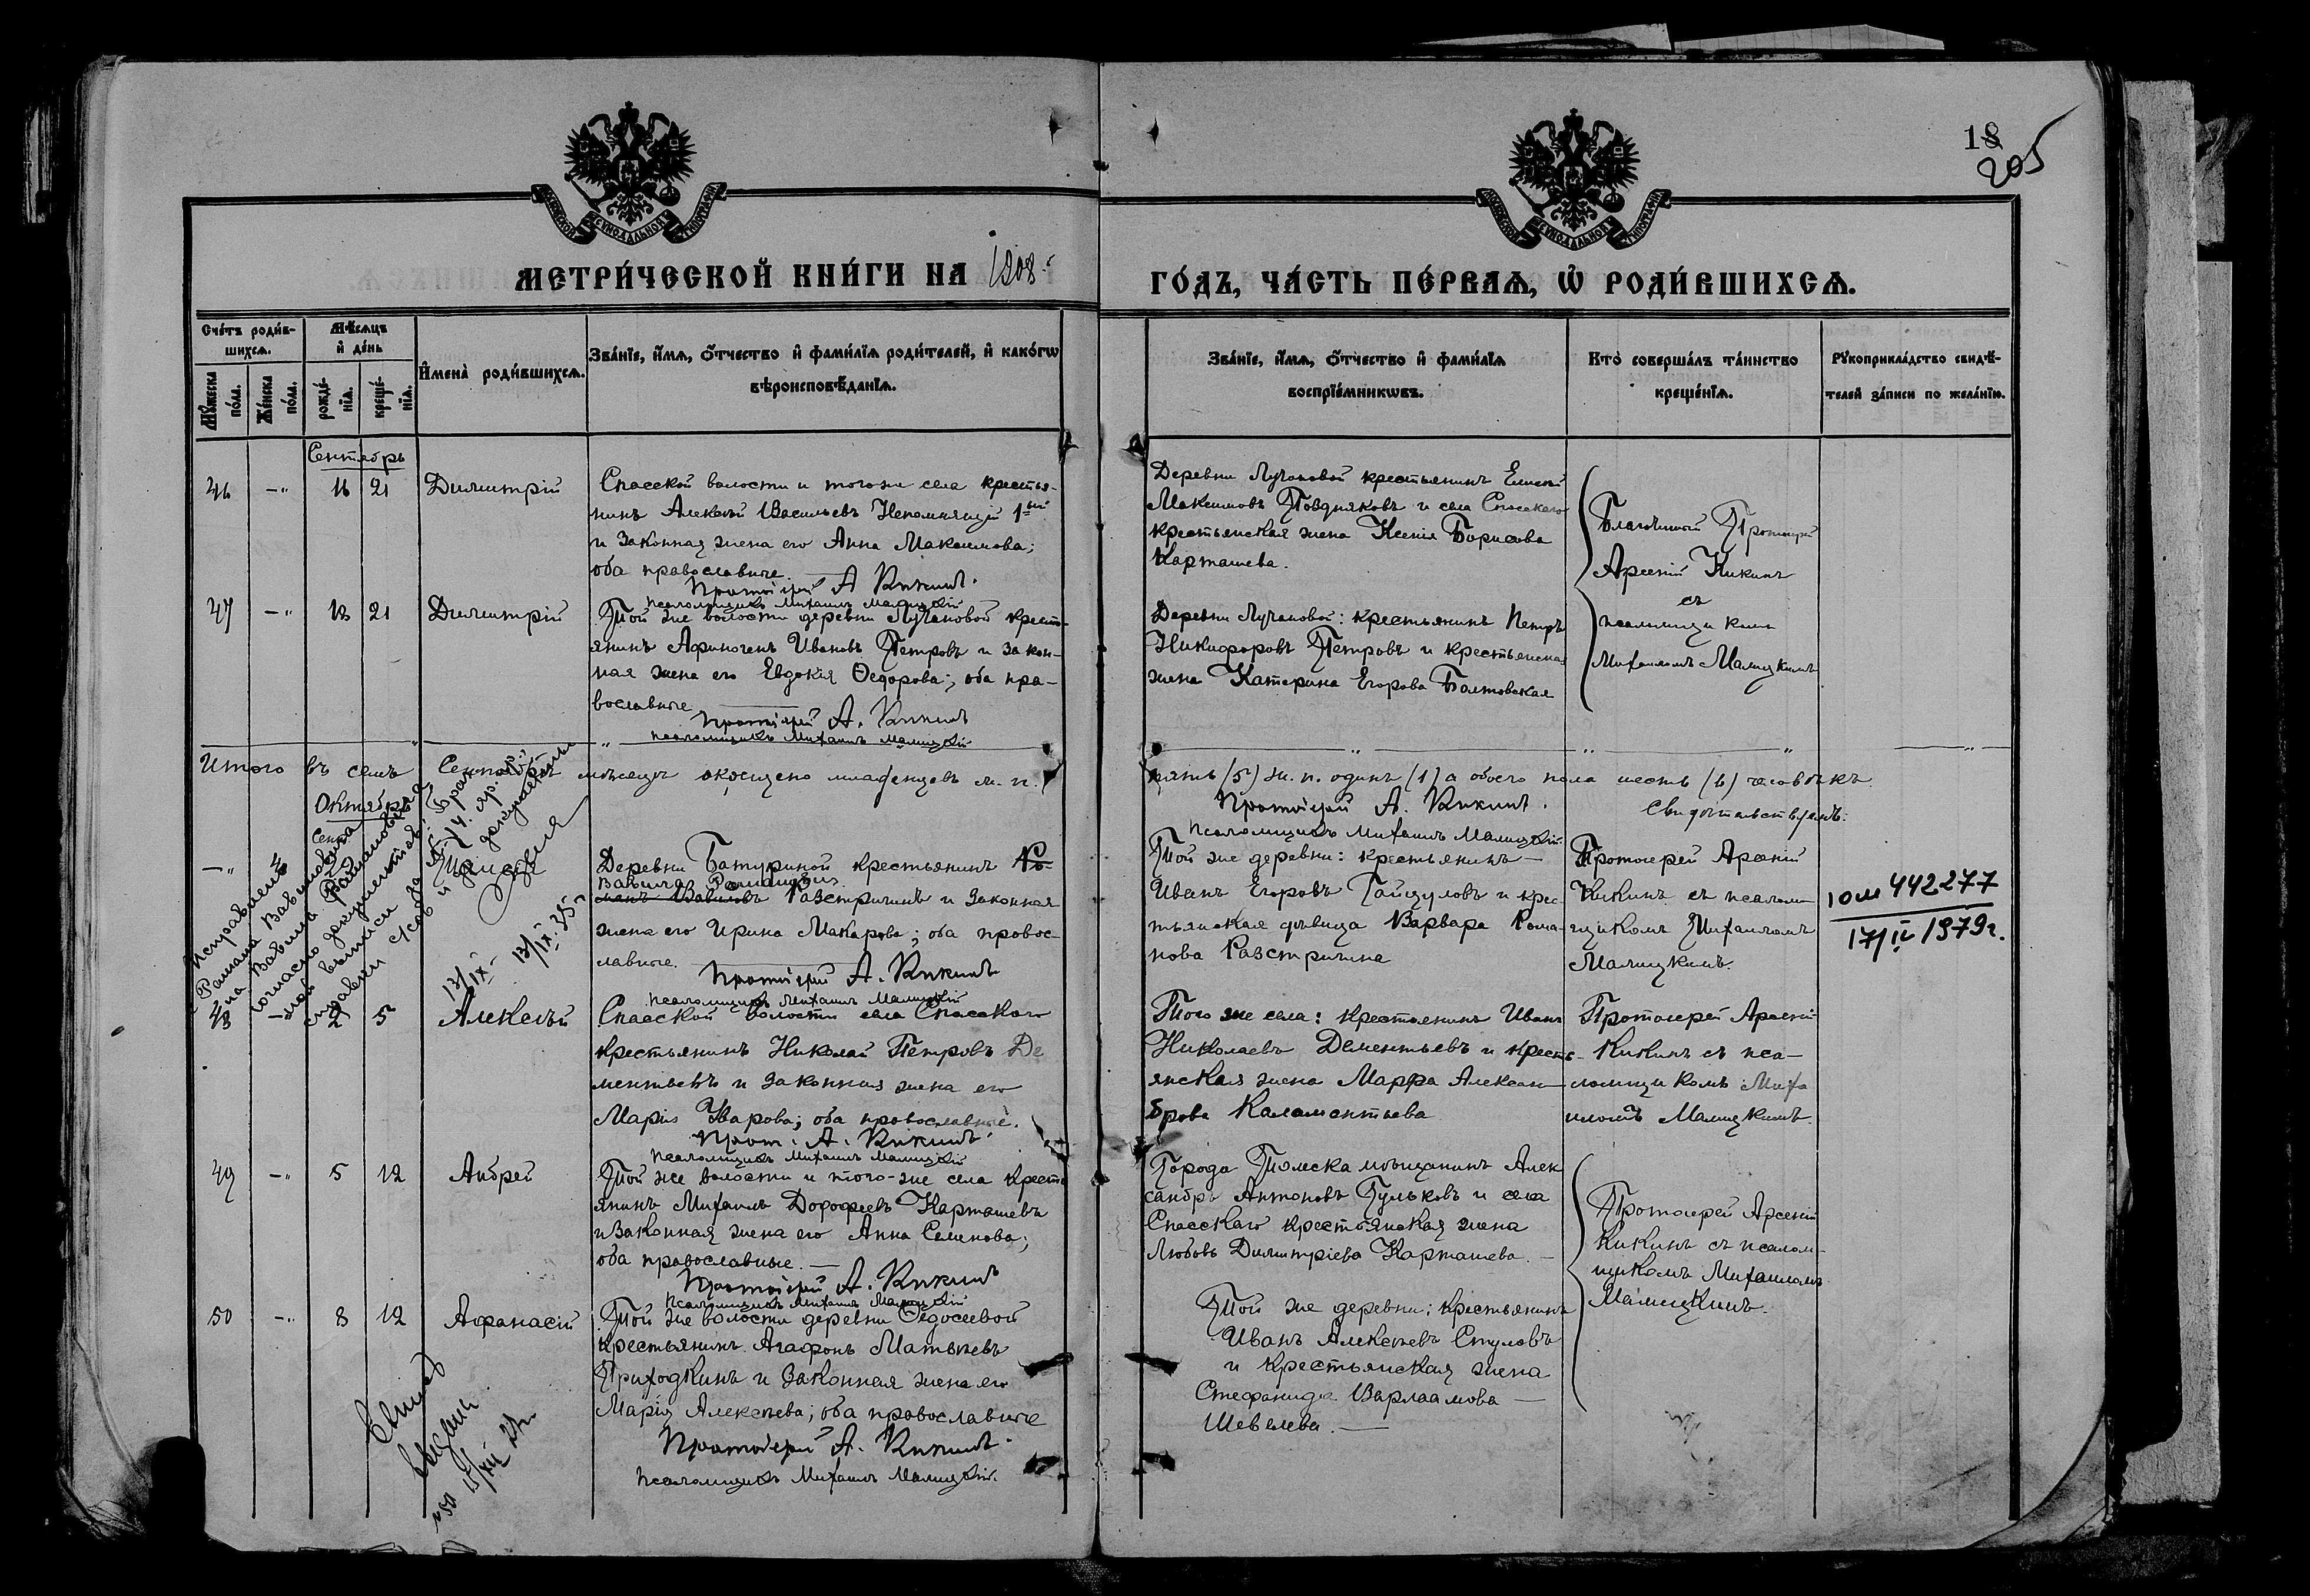 18
205
МЕТРИЧЕСКОЙ КНИГИ НА 1908 г.
ГОДЪ, ЧАСТЬ ПЕРВАЯ, Ѡ РОДИВШИХСЯ.
Счетъ родив-
шихся.
Мужеска пола.
Женска пола.
Мѣсяцъ
и день
рожде-
нія.
креще-
нія.
Имена родившихся.
Званіе, имя, отчество и фамилія родителей, и какогѡ
вѣроисповѣданія.
Званіе, имя, отчество и фамилія
воспріемникѡвъ.
Кто совершалъ таинство
крещенія.
Рукоприкладство свидѣ-
телей записи по желанію.
Сентябрь
46 —" 16 21 Димитрій
Спасской волости и тогоже села крестья-
нинъ Алексѣй Васильевъ Непомнящій 1-ый
и законная жена его Анна Максимова;
оба православные.
Протоіерей А Кикинъ.
Псаломщикъ Михаилъ Малицкій
Деревни Лучановой крестьянинъ Елисей
Максимовъ Поздняковъ и села Спасскаго
крестьянская жена Ксенія Борисова
Карташева.
Благочинный Протоіерей
Арсеній Кикинъ
съ
псаломщикомъ
Михаиломъ Малицкимъ
47 —" 18 21 Димитрій
Той же волости деревни Лучановой кресть-
янинъ Афиногенъ Ивановъ Петровъ и закон-
ная жена его Евдокія Ѳедорова; оба пра-
вославные
Протоіерей А. Кикинъ
Псаломщикъ Михаилъ Малицкій
Деревни Лучановой: крестьянинъ Петръ
Никифоровъ Петровъ и крестьянская
жена Катерина Егорова Болтовская
Итого въ семъ Сентябрѣ мѣсяцѣ окрещено младенцевъ м. п.
пять (5) ж. п. одинъ (1) а обоего пола шесть (6) человѣкъ.
Протоіерей А. Кикинъ.
Свидѣтельствуемъ:
Псаломщикъ Михаилъ Малицкій.
Октябрь
Сент.
—"
Деревни Батуриной крестьянинъ Ро-
Вавила Романовъ
манъ Вавиловъ Разстригинъ и законная
жена его Ирина Макарова; оба правос-
лавные.
Протоіерей А. Кикинъ
Псаломщикъ Михаилъ Малицкій
Той же деревни: крестьянинъ —
Иванъ Егоровъ Гайдуловъ и крес-
тьянская дѣвица Варвара Рома-
нова Разстригина
Протоіерей Арсеній
Кикинъ съ псалом-
щикомъ Михаиломъ
Малицкимъ.
10 м 442277
17/IV 1979 г.
Исправлено
Романа Вавиловича
на Вавила Романовича
согласно документамъ:
13/IX-
13/IX-35 г
48 —" 2 5 Алексѣй
Спасской волости села Спасскаго
крестьянинъ Николай Петровъ Де-
ментьевъ и законная жена его
Марія Уварова; оба православные.
Прот. А. Кикинъ.
Псаломщикъ Михаилъ Малицкій
Того же села: крестьянинъ Иванъ
Николаевъ Дементьевъ и кресть-
янская жена Марфа Алексан-
дрова Каламентьева
Протоіерей Арсеній
Кикинъ съ пса-
ломщикомъ Миха
иломъ Малицкимъ.
49 —" 5 12 Андрей
Той же волости и того-же села кресть-
янинъ Михаилъ Дорофеевъ Карташевъ
и законная жена его Анна Семенова;
оба православные. —
Протоіерей А. Кикинъ
Псаломщикъ Михаилъ Малицкій
Города Томска мѣщанинъ Алек
сандръ Антоновъ Гульковъ и села
Спасскаго крестьянская жена
Любовь Димитріева Карташева. —
Протоіерей Арсеній
Кикинъ съ псалом-
щикомъ Михаиломъ
Малицкимъ.
50 —" 8 12 Афанасій
Той же волости деревни Ѳедосеевой
крестьянинъ Агафонъ Матвѣевъ
Приходкинъ и законная жена его
Марія Алексѣева; оба православные
Протоіерей А. Кикинъ.
Псаломщикъ Михаилъ Малицкій.
Той же деревни; крестьянинъ
Иванъ Алексѣевъ Стуловъ
и крестьянская жена
Стефанида Варлаамова —
Шевелева. —